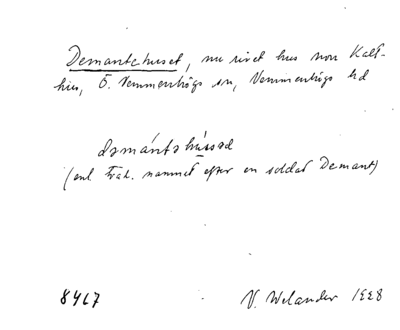 Demantshuset, nu rivet hus
hus, Ö. Vemmenhögs sn, Vemmenhögs hd
(enl. trad. namnet efter en soldat Demant)
8467 V. Welander 1928